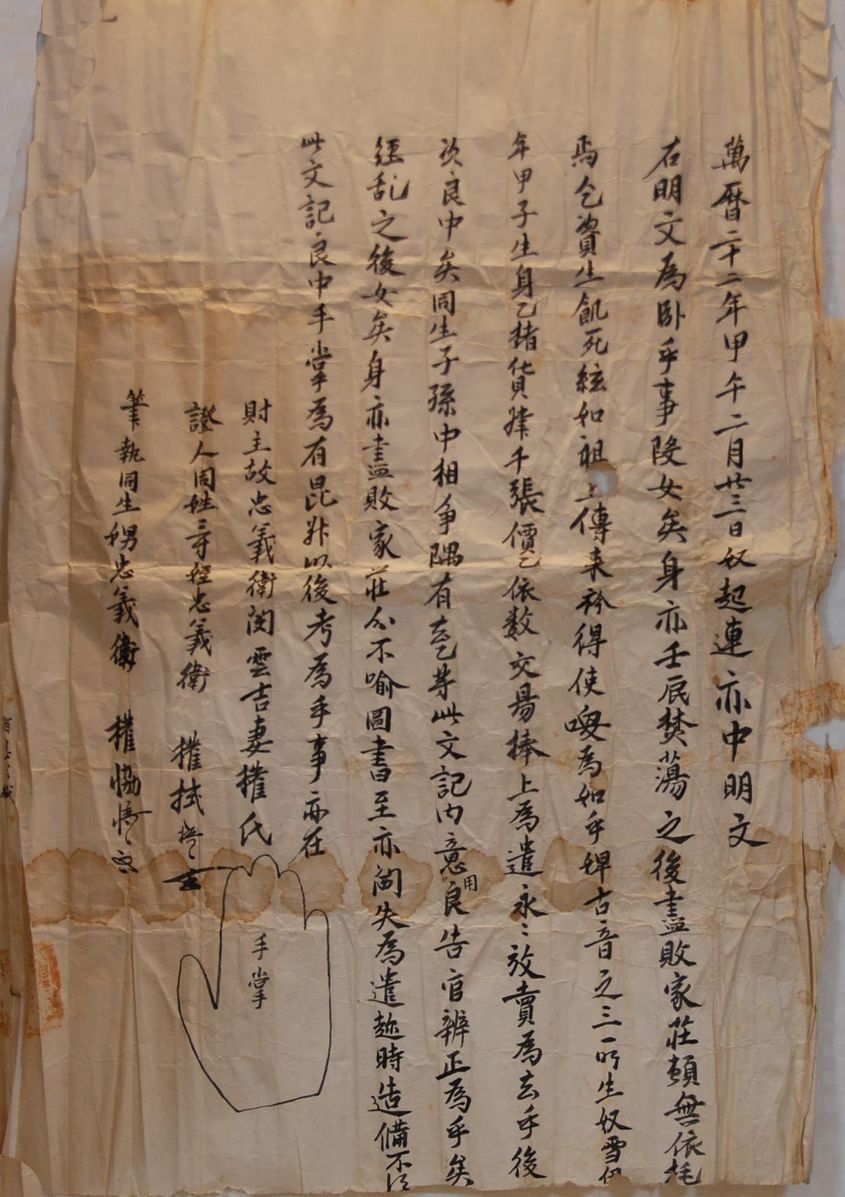 萬曆二十二年甲午二月廿三日奴起連亦中明文
右明文為臥乎事段女矣身亦壬辰焚蕩之後盡敗家莊頓無依托
為乞資生飢死絃如祖上傳来衿得使喚為如乎婢古音之三所生奴雪
年甲子生身乙楮貨肆千張價乙依数交易捧上為遣永〻放賣為去乎後
次良中矣同生子孫中相爭隅有去乙等此文記內意用良告官辨正為乎矣
經乱之後女矣身亦盡敗家莊分不喻圖書至亦閪失為遣趂時造備不
此文記良中手掌為有昆以後考為乎事亦在
財主故忠義衛閔雲吉妻權氏
手掌
證人同姓三寸姪忠義衛 權拭
筆執同生娚忠義衛 權